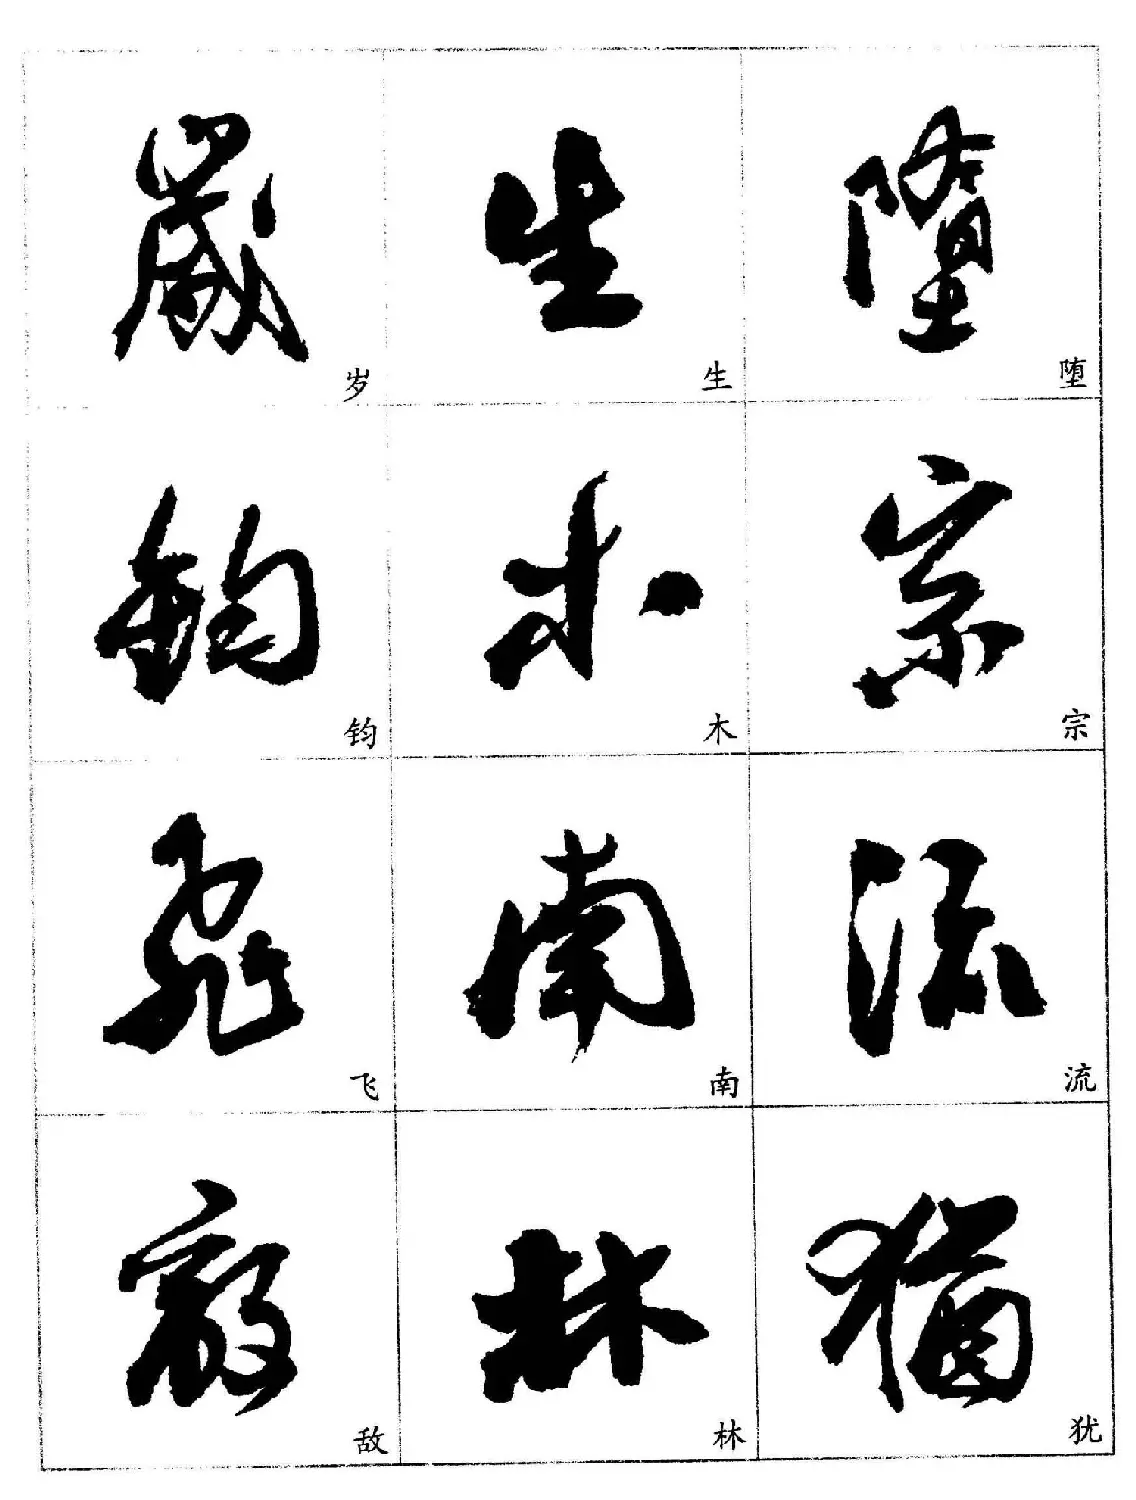 歲 生 墮
岁 生 堕
鈞 木 宗
钧 木 宗
飛 南 流
飞 南 流
敵 林 猶
敌 林 犹